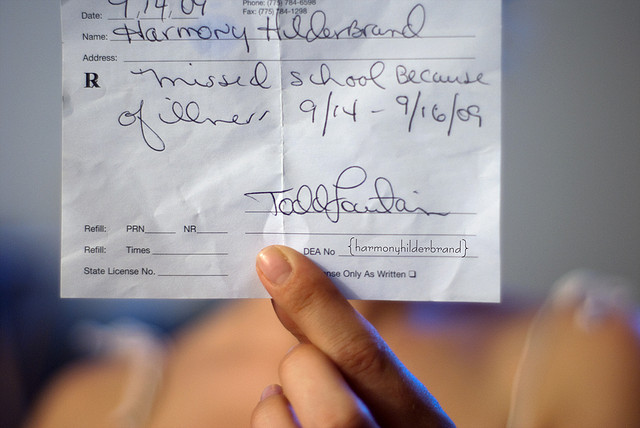 Phone: (775) 784-6598
Date: 9,14,09 Fax: (775) 784-1298
Name: Harmony Hilderbrand
Address:
R missed school Because
of illness 9/14 - 9/16/09
Todd Fountain
Refill: PRN NR
Refill: Times DEA No {harmonyhilderbrand}
State License No. nse Only As Written